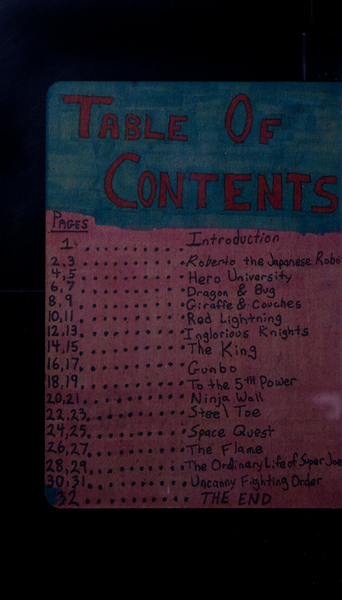 TABLE OF
CONTENTS
PAGES
1. Introduction
2,3 Roberto the Japanese Robo
4,5 Hero University
6,7 Dragon & Bug
8,9 Giraffe & Couches
10,11 Red Lightning
12,13. Inglorious Knights
14,15. The King
16,17. Gunbo
18,19. To the 5th Power
20,21. Ninja Wall
22,23. Steel Toe
24,25. Space Quest
26,27. The Flame
28,29. The Ordinary Life of Super Joe
30,31. Uncanny Fighting Order
32 THE END